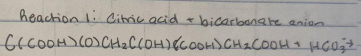 Reaction 1: Citric acid + bicarbonate anion
C(COOH)(O)CH₂C(OH)(COOH)CH₂COOH + HCO₃⁻